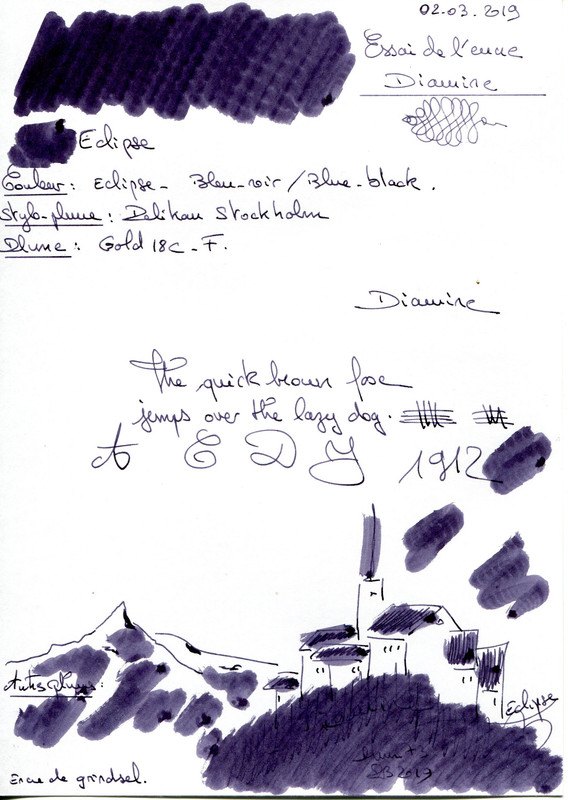 02.03.2019
Essai de l'encre
Diamine
Eclipse
Couleur : Eclipse - Bleu-noir / Blue-black.
Stylo-plume : Pelikan Stockholm
Plume : Gold 18c - F.
Diamine
The quick brown fox
jumps over the lazy dog.
A E D Y 1912
Autres plumes :
Eclipse
2019
Encre de grindsel.